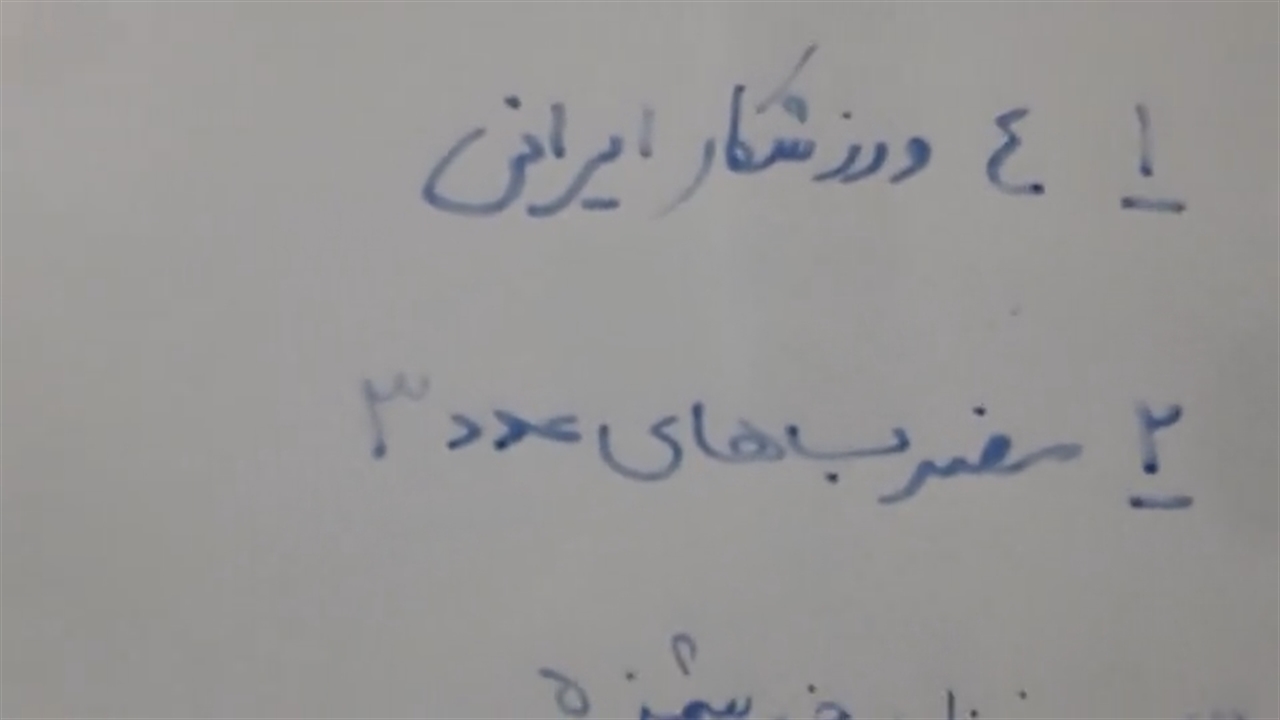 ۱ ٤ ورزشکار ایرانی
۲ مضرب‌های عدد ۳